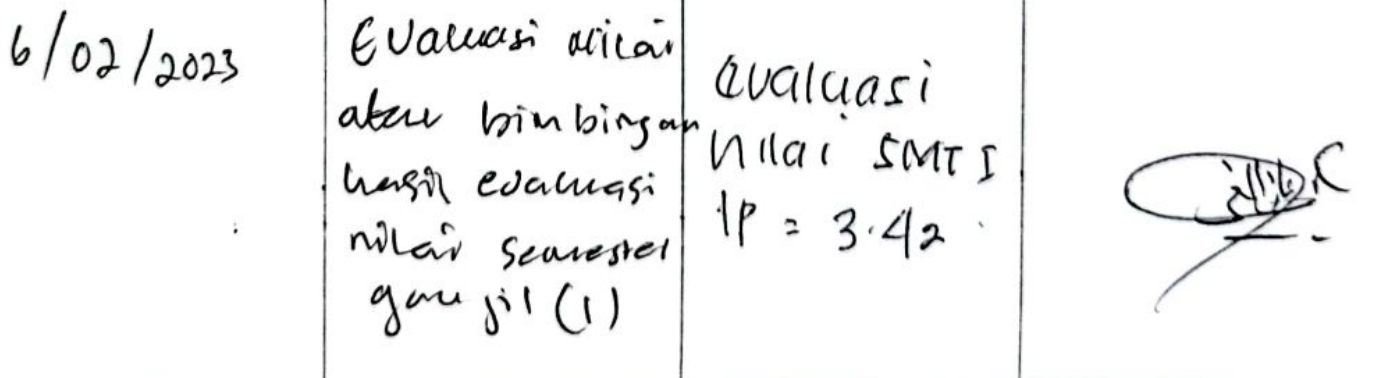 6/02/2023
Evaluasi nilai
atau bimbingan
hasil evaluasi
nilai semester
ganjil (1)
evaluasi
nilai SMT I
IP = 3.42